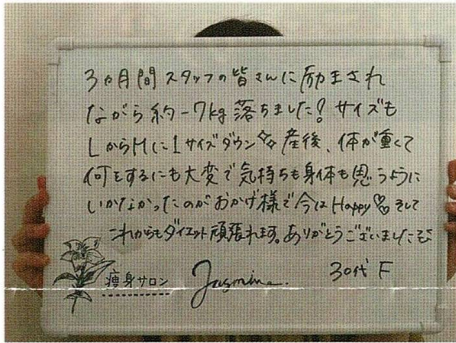 3ヶ月間スタッフの皆さんに励まされ
ながら約-7kg落ちました!サイズも
LからMに1サイズダウン 産後、体が重くて
何をするにも大変で気持ちも身体も思うように
いかなかったのがおかげ様で今はHappy そして
これからもダイエット頑張れます。ありがとうございました
痩身サロン Jasmine. 30代 F